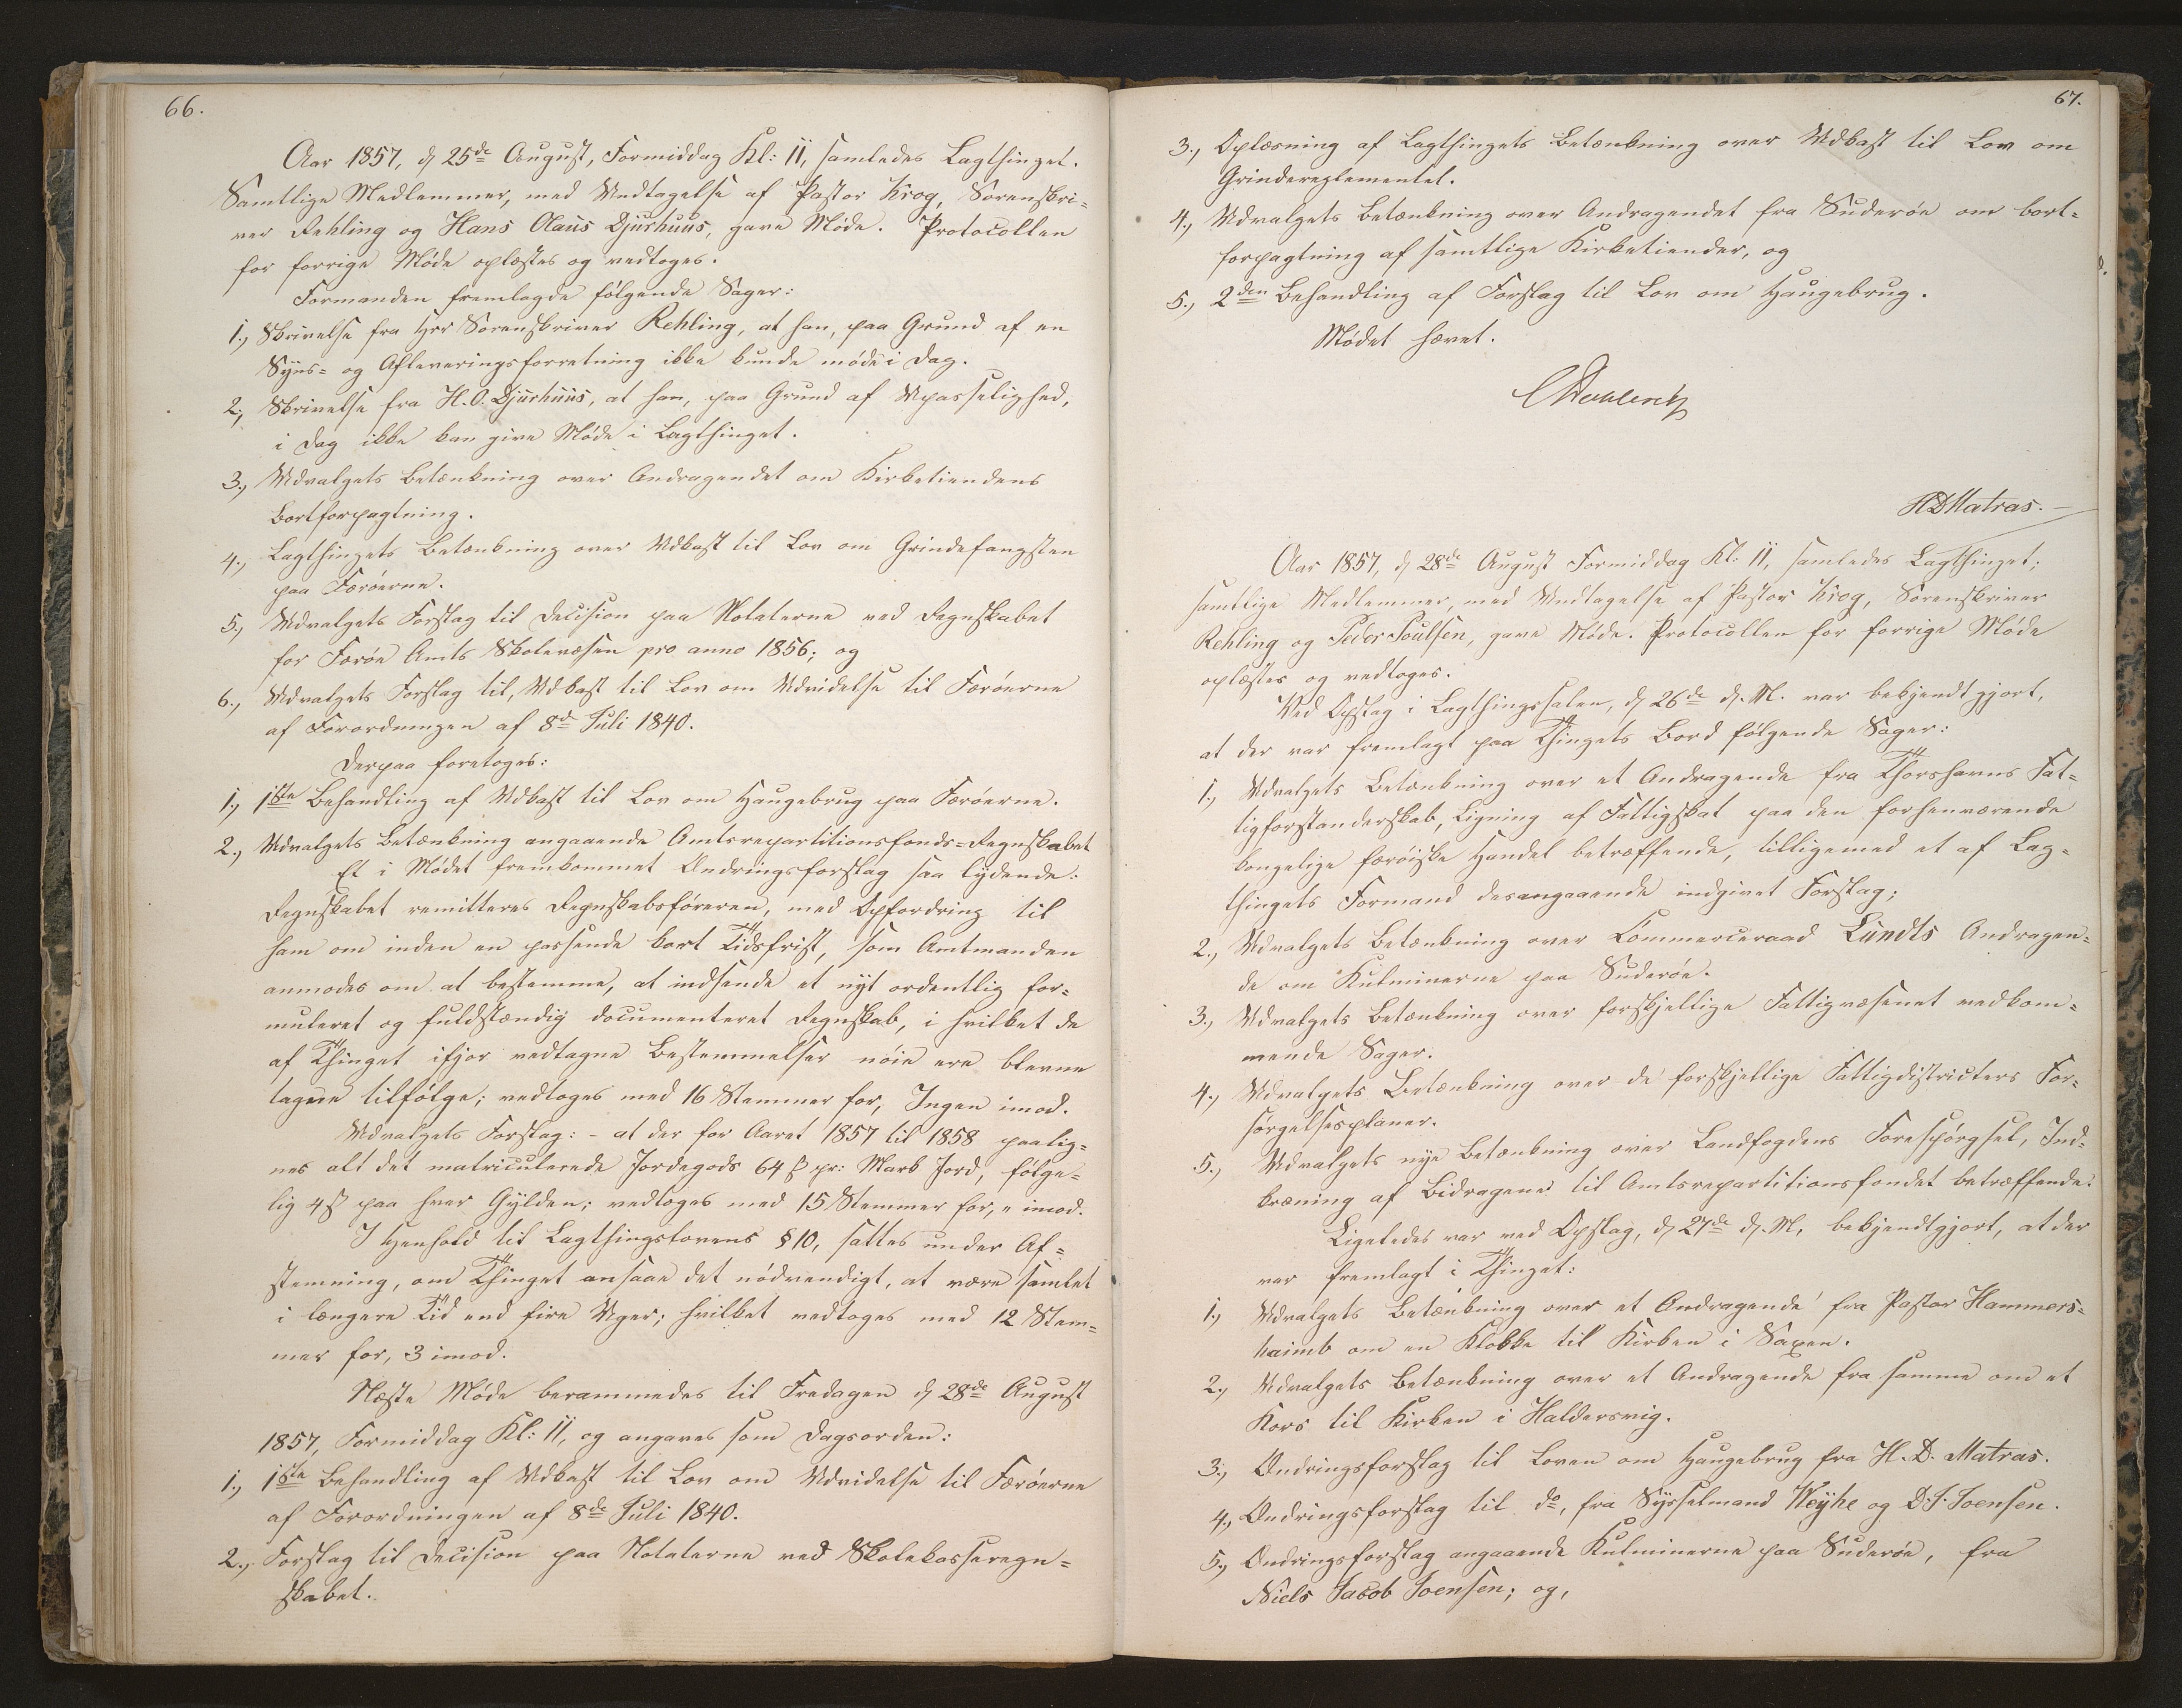 66.
Aar 1857, d 25de August, Formiddag Kl: 11, samledes Lagthinget.
Samtlige Medlemmer, med Undtagelse af Pastor Krog, Sorenskri=
ver Rehling og Hans Olaus Djurhuus, gave Møde. Protocollen
for forrige Møde oplæstes og vedtoges.
Formanden fremlagde følgende Sager:
1., Skrivelse fra Hrr Sorenskriver Rehling, at han, paa Grund af en
Syns= og Afleveringsforretning ikke kunde møde i Dag.
2., Skrivelse fra H. O. Djurhuus, at han, paa Grund af Upasselighed,
i Dag ikke kan give Møde i Lagthinget.
3., Udvalgets Betænkning over Andragendet om Kirketiendens
Bortforpagtning.
4., Lagthingets Betænkning over Udkast til Lov om Grindefangsten
paa Færöerne.
5., Udvalgets Forslag til Decision paa Notaterne ved Regnskabet
for Færöe Amts Skolevæsen pro anno 1856; og
6., Udvalgets Forslag til, Udkast til Lov om Udvidelse til Færöerne
af Forordningen af 8de Juli 1840.
Derpaa foretoges:
1., 1ste Behandling af Udkast til Lov om Haugebrug paa Færöerne.
2., Udvalgets Betænkning angaaende Amtsrepartitionsfonds=Regnskabet
Et i Mødet fremkommet Ændringsforslag saa lydende:
Regnskabet remitteres Regnskabsføreren, med Opfordring til
ham om inden en passende kort Tidsfrist, som Amtmanden
anmodes om at bestemme, at indsende et nyt ordentlig for=
muleret og fuldstændig documenteret Regnskab, i hvilket de
af Thinget ifjor vedtagne Bestemmelser nöie ere blevne
tagne tilfølge; vedtoges med 16 Stemmer for, Ingen imod.
Udvalgets Forslag: - at der for Aaret 1857 til 1858 paalig=
nes alt det matriculerede Jordegods 64 ß pr: Mark Jord, følge=
lig 4 ß paa hver Gylden; vedtoges med 15 Stemmer for, " imod.
I Henhold til Lagthingslovens § 10, sattes under Af=
stemning, om Thinget ansaae det nødvendigt, at være samlet
i længere Tid end fire Uger; hvilket vedtoges med 12 Stem=
mer for, 3 imod.
Næste Møde berammedes til Fredagen d 28de August
1857, Formiddag Kl: 11, og angaves som Dagsorden:
1., 1ste Behandling af Udkast til Lov om Udvidelse til Færöerne
af Forordningen af 8de Juli 1840.
2., Forslag til Decision paa Notaterne ved Skolekasseregn=
skabet.
67.
3., Oplæsning af Lagthingets Betænkning over Udkast til Lov om
Grindereglementet.
4., Udvalgets Betænkning over Andragendet fra Suderöe om Bort=
forpagtning af samtlige Kirketiender, og
5., 2den Behandling af Forslag til Lov om Haugebrug.
Mødet hævet.
HDMatras.
Aar 1857, d 28de August Formiddag Kl: 11, samledes Lagthinget;
samtlige Medlemmer, med Undtagelse af Pastor Krog, Sorenskriver
Rehling og Peder Poulsen, gave Møde. Protocollen for forrige Møde
oplæstes og vedtoges.
Ved Opslag i Lagthingssalen, d 26de d. M. var bekjendtgjort,
at der var fremlagt paa Thingets Bord følgende Sager:
1., Udvalgets Betænkning over et Andragende fra Thorshavns Fat=
tigforstanderskab, Ligning af Fattigskat paa den forhenværende
kongelige færöiske Handel betræffende, tilligemed et af Lag=
thingets Formand desangaaende indgivet Forslag;
2., Udvalgets Betænkning over Commerceraad Lundts Andragen=
de om Kulminerne paa Suderöe.
3., Udvalgets Betænkning over forskjellige Fattigvæsenet vedkom=
mende Sager.
4., Udvalgets Betænkning over de forskjellige Fattigdistricters For=
sørgelsesplaner.
5., Udvalgets nye Betænkning over Landfogdens Forespørgsel, Ind=
kræving af Bidragene til Amtsrepartitionsfondet betræffende.
Ligeledes var ved Opslag, d 27de d. M. bekjendtgjort, at der
var fremlagt i Thinget:
1., Udvalgets Betænkning over et Andragende fra Pastor Hammers=
haimb om en Klokke til Kirken i Saxen.
2., Udvalgets Betænkning over et Andragende fra samme om et
Kors til Kirken i Haldersvig.
3., Ændringsforslag til Loven om Haugebrug fra H. D. Matras.
4., Ændringsforslag til do, fra Sysselmand Weyhe og D. J. Joensen.
5., Ændringsforslag angaaende Kulminerne paa Suderöe, fra
Niels Jacob Joensen; og,